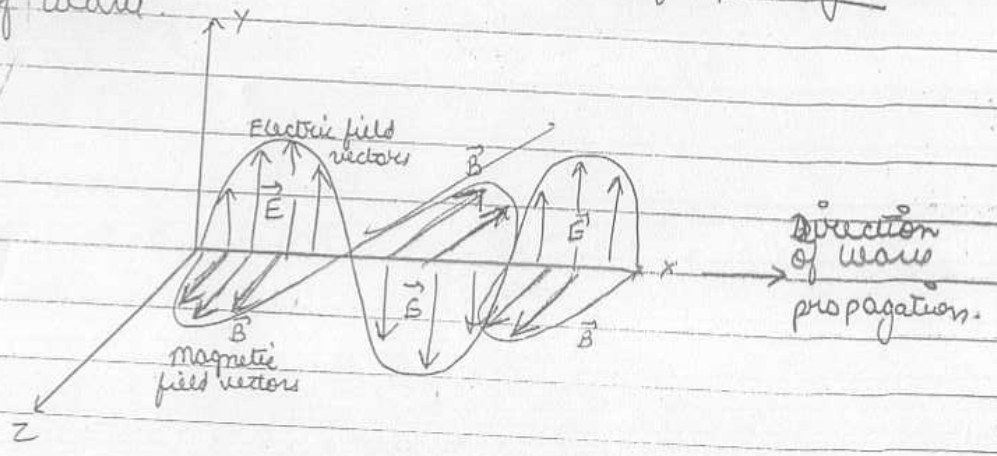 of wave.
Y
Electric field
vectors
B
E
E
Direction
of wave
propagation.
X
E
B
B
Magnetic
field vectors
Z